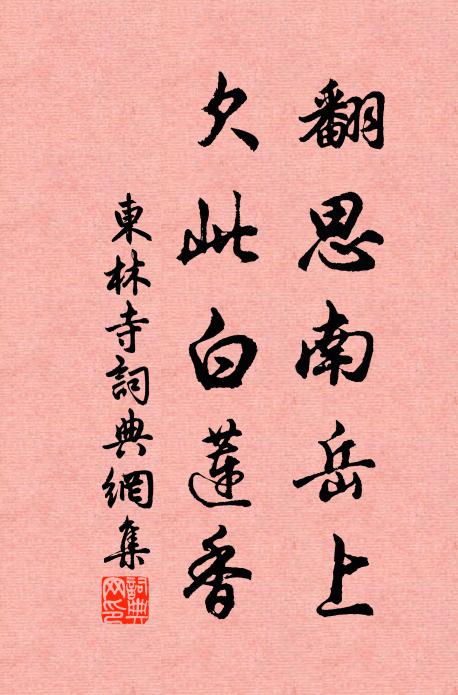 翻思南岳上
欠此白蓮香
東林寺詞典網集
詞典网印